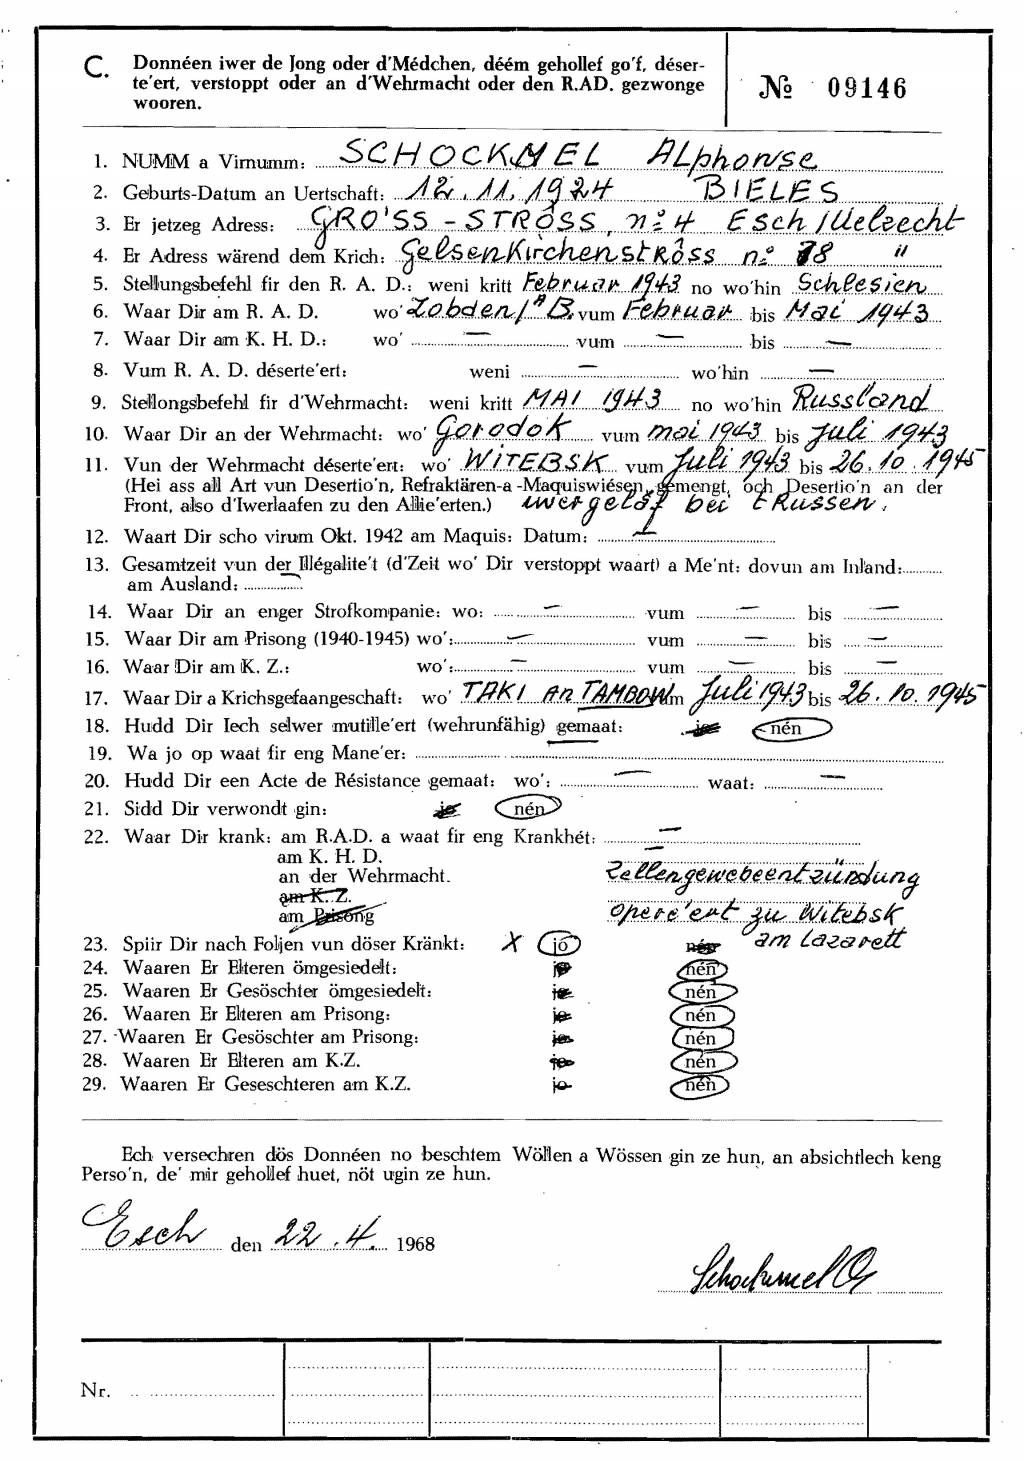 C. Donnéen iwer de Jong oder d'Médchen, déém gehollef go'f, déser-
te'ert, verstoppt oder an d'Wehrmacht oder den R.AD. gezwonge
wooren.
№ 09146
1. NUMM a Virnumm: SCHOCKMEL ALphonse
2. Geburts-Datum an Uertschaft: 12.11.1924 BIELES
3. Er jetzeg Adress: GRO'SS-STROSS, n° 4 Esch/Uelzecht
4. Er Adress wärend dem Krich: GelsenKirchenstrôss n° 78 "
5. Stellungsbefehl fir den R. A. D.: weni kritt Februar 1943 no wo'hin Schlesien
6. Waar Dir am R. A. D. wo' Zobden/A B. vum Februar bis Mai 1943
7. Waar Dir am K. H. D.: wo' — vum — bis —
8. Vum R. A. D. déserte'ert: weni — wo'hin —
9. Stellongsbefehl fir d'Wehrmacht: weni kritt MAI 1943 no wo'hin Russland
10. Waar Dir an der Wehrmacht: wo' Gorodok vum mai 1943 bis Juli 1943
11. Vun der Wehrmacht déserte'ert: wo' WITEBSK vum Juli 1943 bis 26.10.1945
(Hei ass all Art vun Desertio'n, Refraktären-a -Maquiswiésen gemengt, och Desertio'n an der
Front, also d'Iwerlaafen zu den Allie'erten.) iwergelaf bei t Russen.
12. Waart Dir scho virum Okt. 1942 am Maquis: Datum: —
13. Gesamtzeit vun der Illégalite't (d'Zeit wo' Dir verstoppt waart) a Me'nt: dovun am Inland:
am Ausland: —
14. Waar Dir an enger Strofkompanie: wo: — vum — bis —
15. Waar Dir am Prisong (1940-1945) wo': — vum — bis —
16. Waar Dir am K. Z.: wo': — vum — bis —
17. Waar Dir a Krichsgefaangeschaft: wo' TAKI an TAMBOW vum Juli 1943 bis 26.10.1945
18. Hudd Dir Iech selwer mutille'ert (wehrunfähig) gemaat: jo nén
19. Wa jo op waat fir eng Mane'er:
20. Hudd Dir een Acte de Résistance gemaat: wo': — waat: —
21. Sidd Dir verwondt gin: jo nén
22. Waar Dir krank: am R.A.D. a waat fir eng Krankhét: —
am K. H. D. —
an der Wehrmacht. Zellengewebeentzündung
am K. Z. opere'ert zu Witebsk
am Prisong am Lazarett
23. Spiir Dir nach Foljen vun döser Kränkt: X jó nén
24. Waaren Er Elteren ömgesiedelt: jo nén
25. Waaren Er Gesöschter ömgesiedelt: jo nén
26. Waaren Er Elteren am Prisong: jo nén
27. Waaren Er Gesöschter am Prisong: jo nén
28. Waaren Er Elteren am K.Z. jo nén
29. Waaren Er Geseschteren am K.Z. jo nén
Ech versechren dös Donnéen no beschtem Wöllen a Wössen gin ze hun, an absichtlech keng
Perso'n, de' mir gehollef huet, nöt ugin ze hun.
Esch den 22.4. 1968
Schockmel A
Nr.